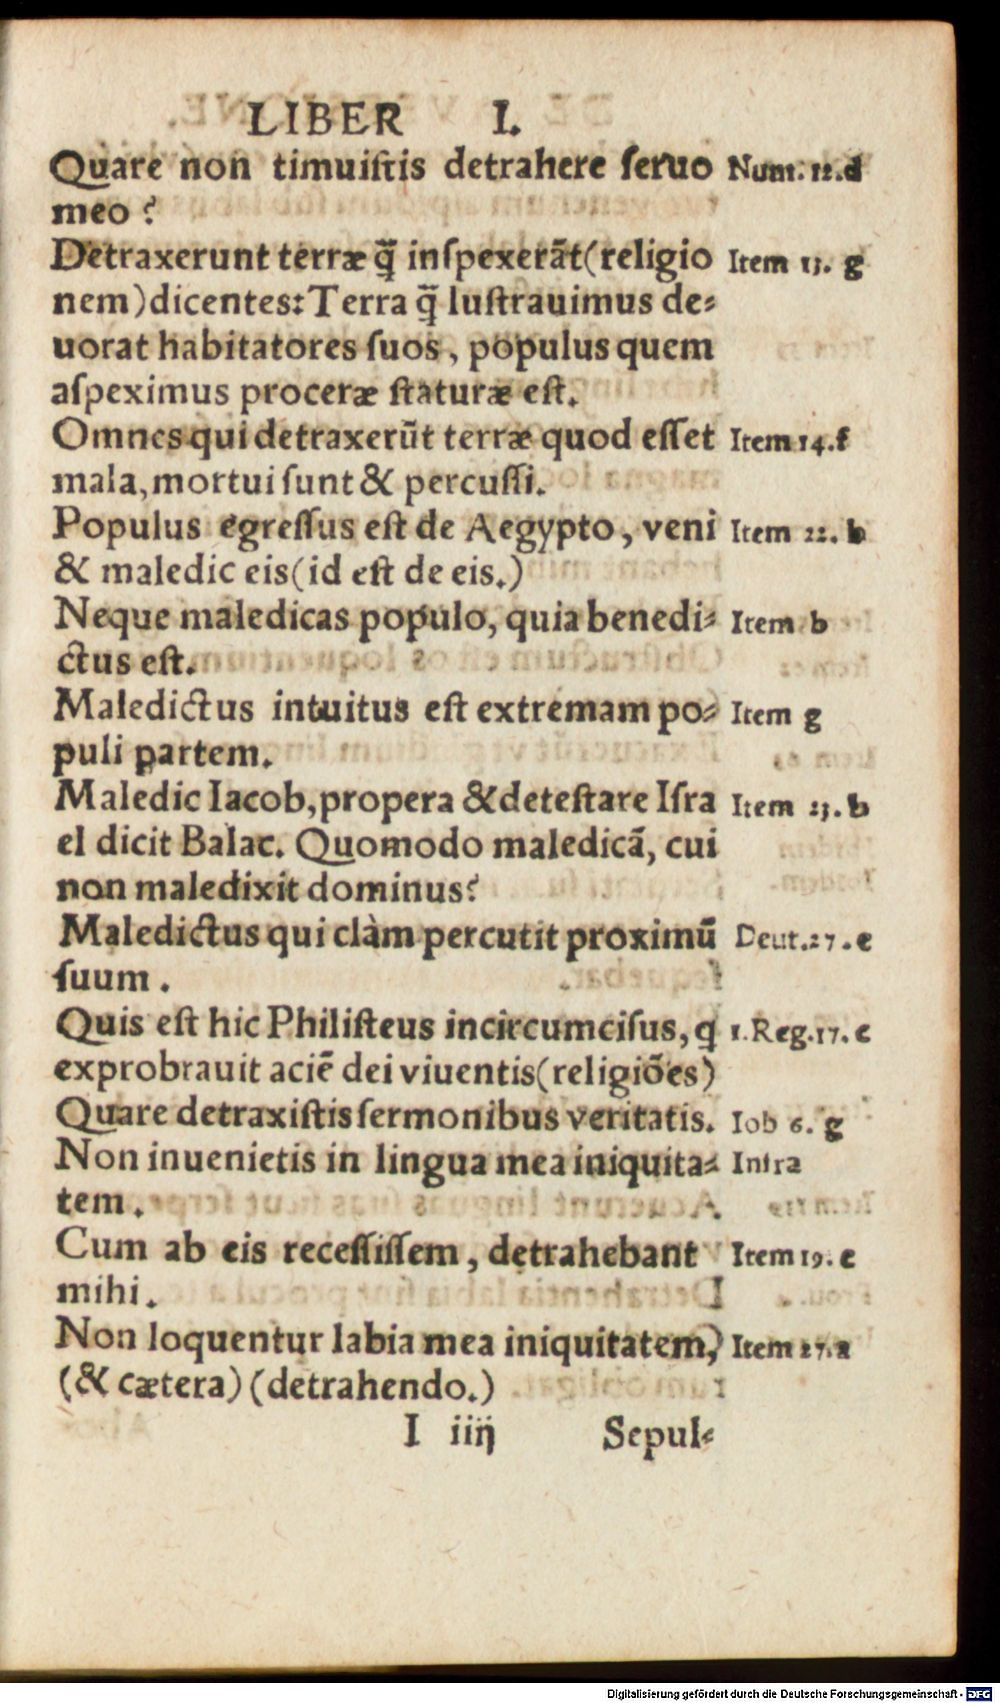 LIBER I.
Quare non timuiſtis detrahere ſeruo Num. 12.d
meo?
Detraxerunt terræ q̃ inſpexerãt(religio Item 13. g
nem)dicentes: Terra q̃ luſtrauimus de⸗
uorat habitatores ſuos, populus quem
aſpeximus proceræ ſtaturæ eſt.
Omnes qui detraxerũt terræ quod eſſet Item 14.f
mala, mortui ſunt & percuſſi.
Populus egreſſus eſt de Aegypto, veni Item 22. b
& maledic eis(id eſt de eis.)
Neque maledicas populo, quia benedi⸗ Item b
ctus eſt.
Maledictus intuitus eſt extremam po⸗ Item g
puli partem.
Maledic Iacob, propera & deteſtare Iſra Item 23. b
el dicit Balac. Quomodo maledicã, cui
non maledixit dominus?
Maledictus qui clàm percutit proximũ Deut.27.e
ſuum.
Quis eſt hic Philiſteus incircumciſus, q 1.Reg.17.e
exprobrauit aciẽ dei viuentis(religiões)
Quare detraxiſtis ſermonibus veritatis. Iob 6. g
Non inuenietis in lingua mea iniquita⸗ Infra
tem.
Cum ab eis receſſiſſem, detrahebant Item 19. c
mihi.
Non loquentur labia mea iniquitatem, Item 27.a
(& cætera) (detrahendo.)
I iiij Sepul⸗
Digitalisierung gefördert durch die Deutsche Forschungsgemeinschaft - DFG